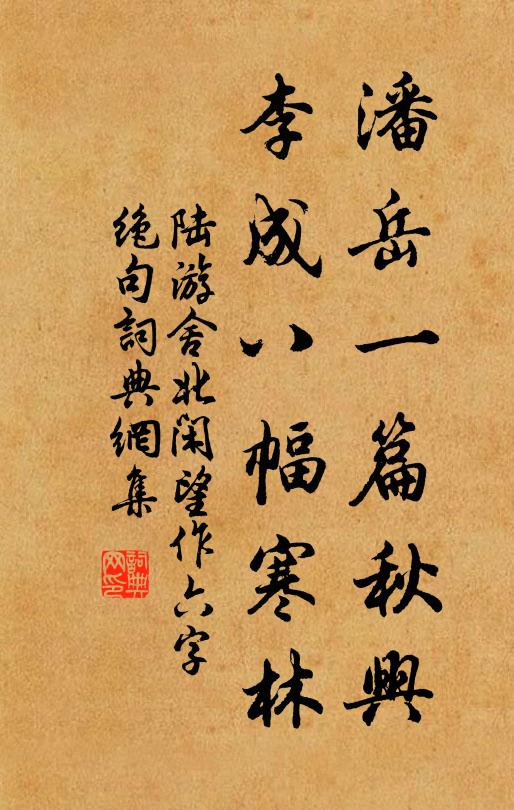 潘岳一篇秋興
李成八幅寒林
陆游舍北閑望作六字
绝句詞典網集
詞典网印